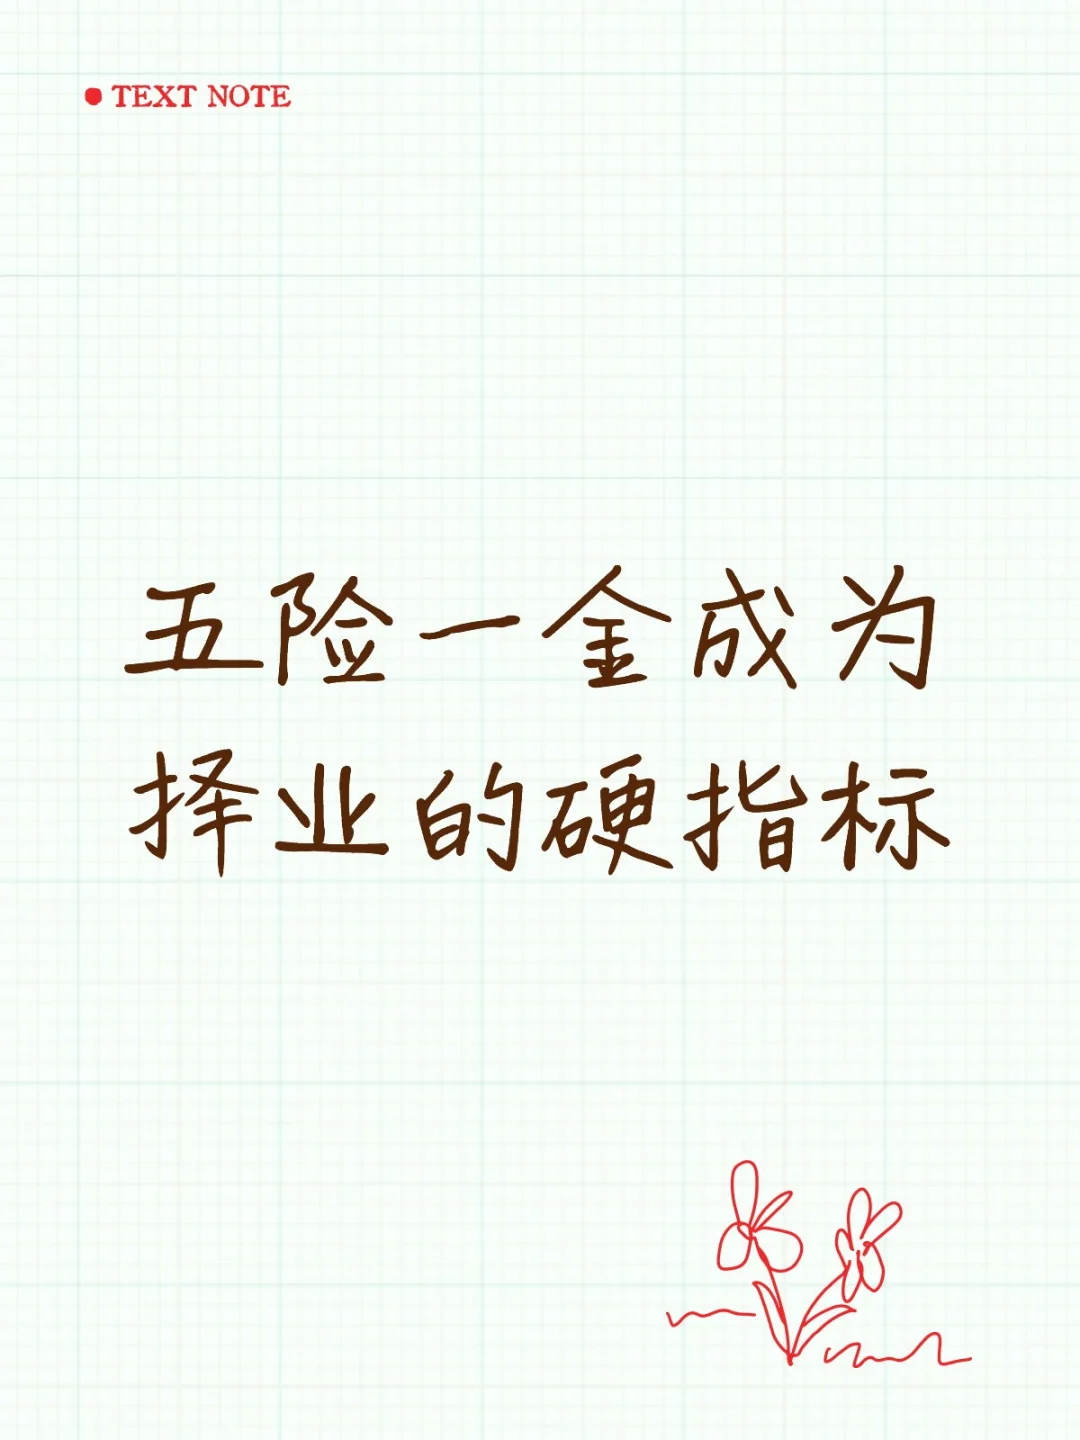 TEXT NOTE
五险一金成为
择业的硬指标